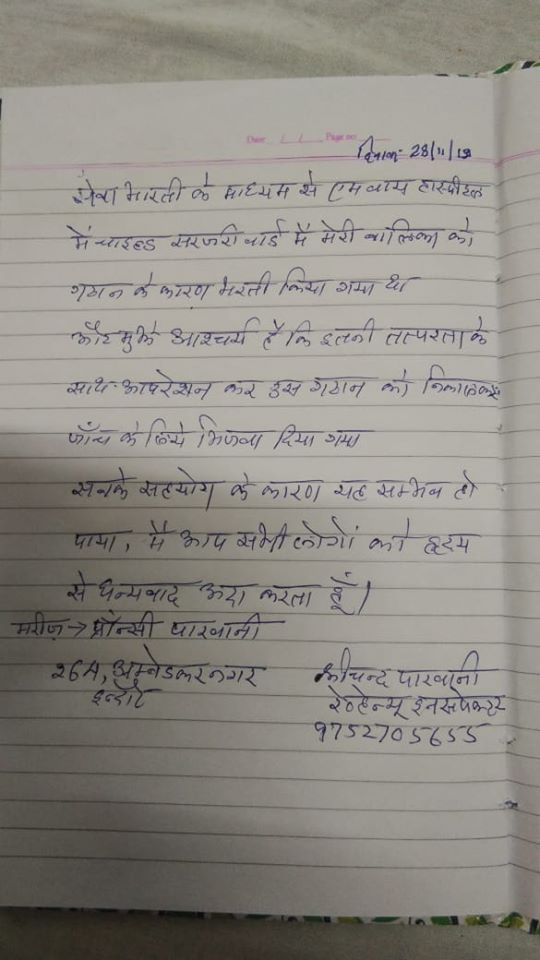 Date / / Page no
दिनांक- 28/11/19
सेवा भारती के माध्यम से एमवाय हास्पीटल
में चाइल्ड सरजरी वार्ड में मेरी बालिका को
गठान के कारण भरती किया गया था
और मुझे आश्चर्य है कि इतनी तत्परता के
साथ आपरेशन कर इस गठान को निकालकर
जाँच के लिये भिजवा दिया गया
सबके सहयोग के कारण यह सम्भव हो
पाया, मैं आप सभी लोगों को ह्रदय
से धन्यवाद अदा करता हूँ।
मरीज़ → प्रॉन्सी पारवानी
26A, अम्बेडकर नगर
इन्दौर
श्रीचन्द पारवानी
रेवेन्यू इनसपेक्टर
9752705655